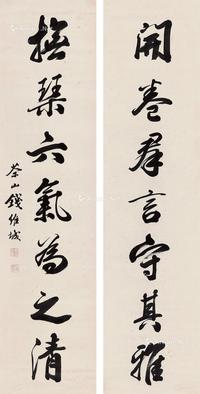 開卷群言守其雅
撫琴六氣為之清
茶山錢維城